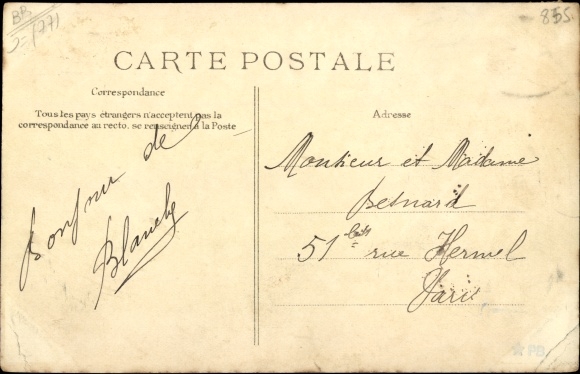 BB
855
CARTE POSTALE
Correspondance
Tous les pays étrangers n'acceptent pas la
correspondance au recto. se renseigner à la Poste
Adresse
Bonjour de
Blanche
Monsieur et Madame
Besnard
51 bis rue Hermel
Paris
PB